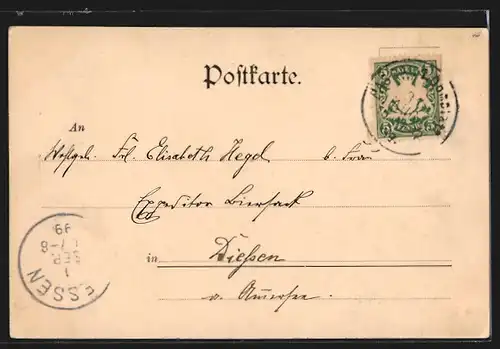 Postkarte.
An
Wohlgeb. Frl. Elisabeth Hegel b. Frau
Expeditor Biersack
in Diessen
a. Ammersee
ESSEN
1
SEP
7-8
99
5 5